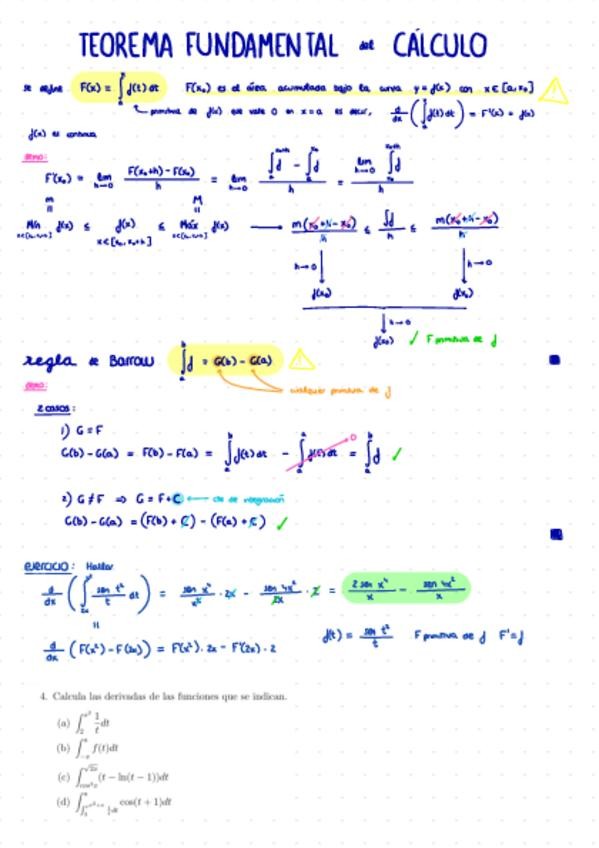 TEOREMA FUNDAMENTAL del CÁLCULO
se define F(x) = ∫ₐˣ f(t) dt F(x₀) es el área acumulada bajo la curva y = f(x) con x ∈ [a, x₀]
primitiva de f(x) que vale 0 en x = a es decir, d/dx (∫ₐˣ f(t) dt) = F'(x) = f(x)
f(x) es continua
demo:
F'(x₀) = lim h→0 (F(x₀+h) - F(x₀))/h = lim h→0 (∫ₐˣ⁰⁺ʰ f - ∫ₐˣ⁰ f)/h = lim h→0 ∫ₓ₀ˣ⁰⁺ʰ f / h
m M
Mín f(x) ≤ f(x) ≤ Máx f(x) → m(x₀+h-x₀)/h ≤ ∫f/h ≤ m(x₀+h-x₀)/h
x∈[x₀, x₀+h] x∈[x₀, x₀+h] x∈[x₀, x₀+h]
h→0 h→0
f(x₀) f(x₀)
h→0
f(x₀) ✓ F primitiva de f
regla de Barrow ∫ₐᵇ f = G(b) - G(a)
cualquier primitiva de f
demo:
2 casos:
1) G = F
G(b) - G(a) = F(b) - F(a) = ∫ₐᵇ f(t) dt - ∫ₐᵃ f(t) dt 0 = ∫ₐᵇ f ✓
2) G ≠ F ⇒ G = F + C ← cte de integración
G(b) - G(a) = (F(b) + C) - (F(a) + C) ✓
ejercicio: Hallar
d/dx (∫₂ₓ^(x²) sen t²/t dt) = sen x⁴/x² · 2x - sen 4x²/2x · 2 = 2 sen x⁴/x - sen 4x²/x
d/dx (F(x²) - F(2x)) = F'(x²) · 2x - F'(2x) · 2 f(t) = sen t²/t F primitiva de f F' = f
4. Calcula las derivadas de las funciones que se indican.
(a) ∫₂^(x²) 1/t dt
(b) ∫₋ₓˣ f(t)dt
(c) ∫_(cos² x)^(√2x) (t − ln(t − 1))dt
(d) cos(t + 1)dt